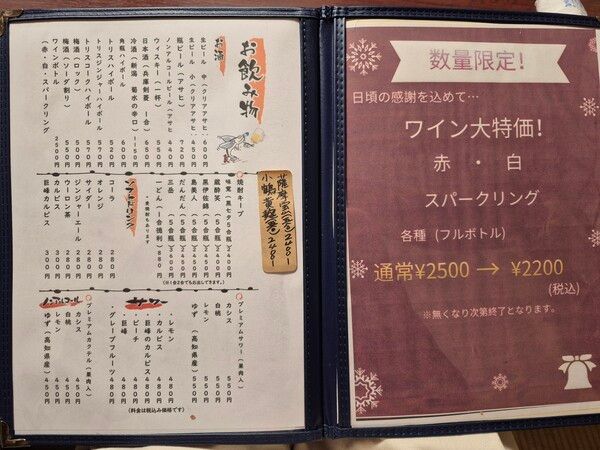 お飲み物
お酒
生ビール 中 (クリアアサヒ) 600円
生ビール 小 (クリアアサヒ) 450円
瓶ビール (アサヒ) 720円
ノンアルコールビール (アサヒ)
ウィスキー (一杯)
日本酒 (兵庫剣菱 一合)
冷酒 (新潟 菊水の辛口) 1150円
角瓶ハイボール
トリスハイボール 520円
トリスジンジャーハイボール
トリスコークハイボール 570円
梅酒 (ロック) 500円
梅酒 (ソーダ割り) 550円
ワインボトル 2500円
(赤・白・スパークリング)
焼酎キープ
蔵酔笑 (5合瓶) 2400円
黒伊佐錦 (5合瓶)
島美人 (5合瓶)
だんだん (5合瓶)
三岳 (5合瓶)
一どん (一合徳利) 860円
・麦焼酎もあります
※1合2合でもお出しできます。
ソフトドリンク
コーラ 280円
オレンジ 280円
サイダー 280円
ジンジャーエール 280円
ウーロン茶 280円
カルピス 280円
巨峰カルピス 300円
プレミアムサワー (果肉入)
カシス 550円
白桃 550円
レモン 550円
ゆず (高知県産) 550円
サワー
・レモン 480円
・カルピス 480円
・巨峰のカルピス 480円
・ピーチ 480円
・巨峰 480円
・グレープフルーツ 480円
ノンアルコール
プレミアムカクテル (果肉入)
カシス 450円
白桃 450円
レモン 450円
ゆず (高知県産) 450円
(料金は税込み価格です)
数量限定!
日頃の感謝を込めて…
ワイン大特価!
赤 ・ 白
スパークリング
各種 (フルボトル)
通常¥2500 → ¥2200
(税込)
※無くなり次第終了となります。